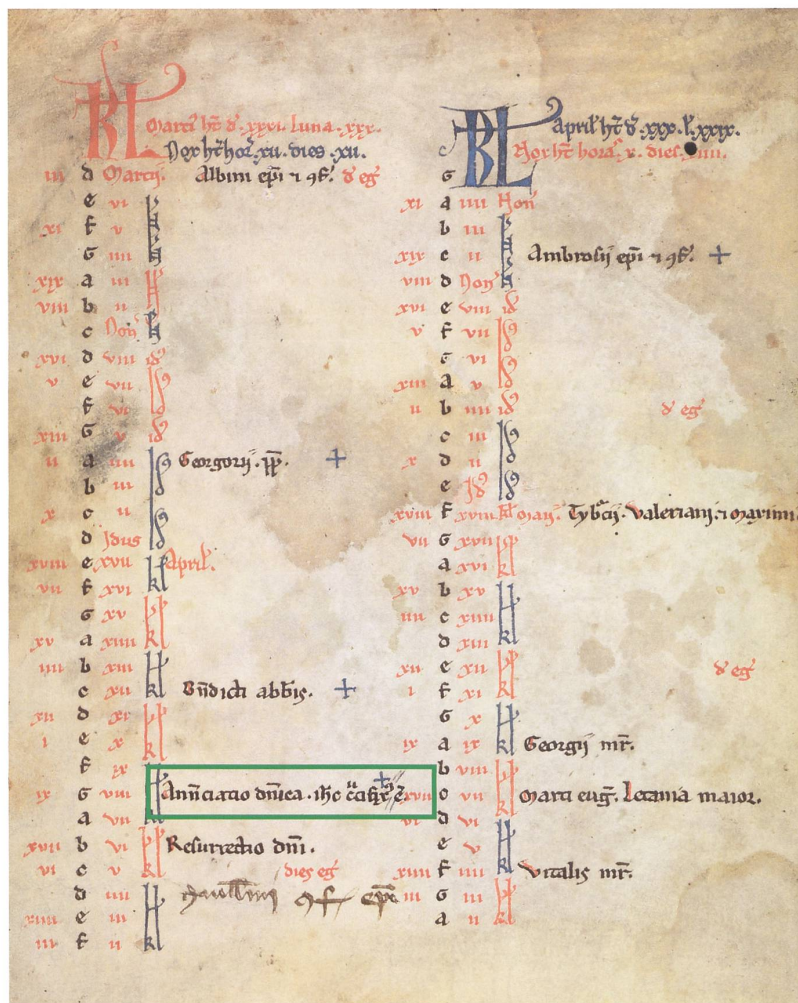 KL
Marci' ht' d' xxxi. luna. xxx.
Nox ht' hor' xii. dies. xii.
iii d Marcii. Albini epi 7 9f'. d' eg'
e vi
xi f v
G iiii
xix a iii
viii b ii
c Non'
xvi d viii id'
v e vii
f vi
xiii G v id'
ii a iiii Georgorii. pp'. +
b iii
x c ii
d Idus
xviii e xvii kl April'.
vii f xvi
G xv
xv a xiiii kl
iiii b xiii
c xii kl Bn'dicti abb'is. +
xii d xi
i e x kl
f ix
ix G viii Ann'ciatio dn'ica. ih'c c'cifix' e'. +
a vii
xvii b vi Resurrectio dn'i.
vi c v kl dies eg'
d iiii 9f' ep'c
xiiii e iii
iii f ii kl
KL
April' ht' d' xxx. l' xxix.
Nox ht' hora' x. dies. xiiii.
G
xi a iiii Non'
b iii
xix c ii Ambrosii epi 7 9f'. +
viii d Non'
xvi e viii id'
v f vii
G vi
xiii a v
ii b iiii id' d' eg'
c iii
x d ii
e Id'
xviii f xviii kl Maii. Tyb'cii. Valeriani. 7 Maximi
vii G xvii
a xvi kl
xv b xv
iiii c xiiii kl
d xiii
xii e xii d' eg'
i f xi kl
G x
ix a ix kl Georgii mr'.
b viii
xvii c vii Marci eug'. Letania maior.
vi d vi
e v
xiiii f kl Vitalis mr'.
iii G iii
a ii kl